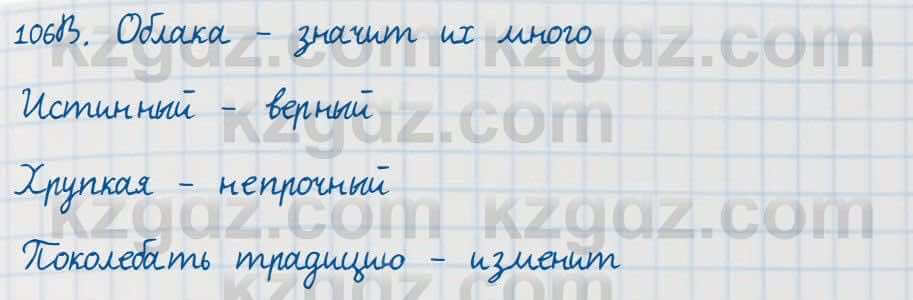 106В. Облака - значит их много
Истинный - верный
Хрупкая - непрочный
Поколебать традицию - изменит
kzgdz.com kzgdz.com
kzgdz.com
kzgdz.com kzgdz.com
kzgdz.com